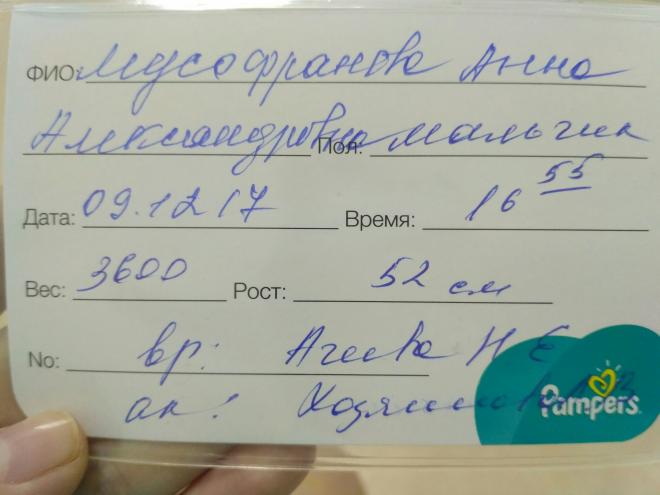 ФИО: Мусофранова Анна
Александровна Пол: мальчик
Дата: 09.12 17 Время: 16 55
Вес: 3600 Рост: 52 см
No: вр: Агеева Н Е
ак:
Pampers